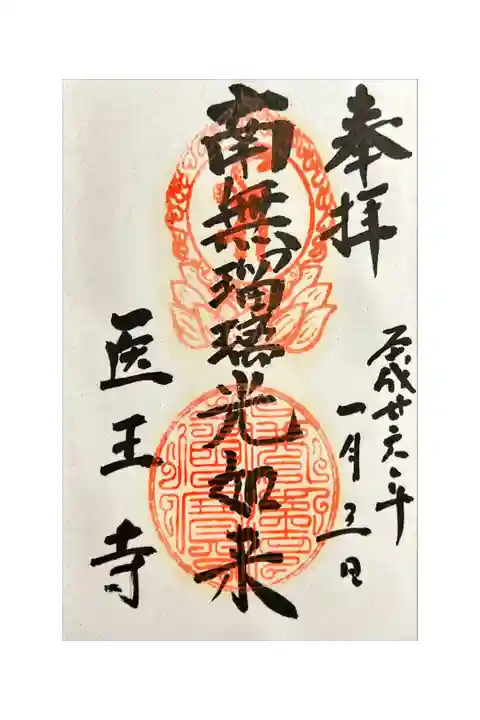 奉拝
平成廿六年
一月三日
南無瑠璃光如来
医王寺